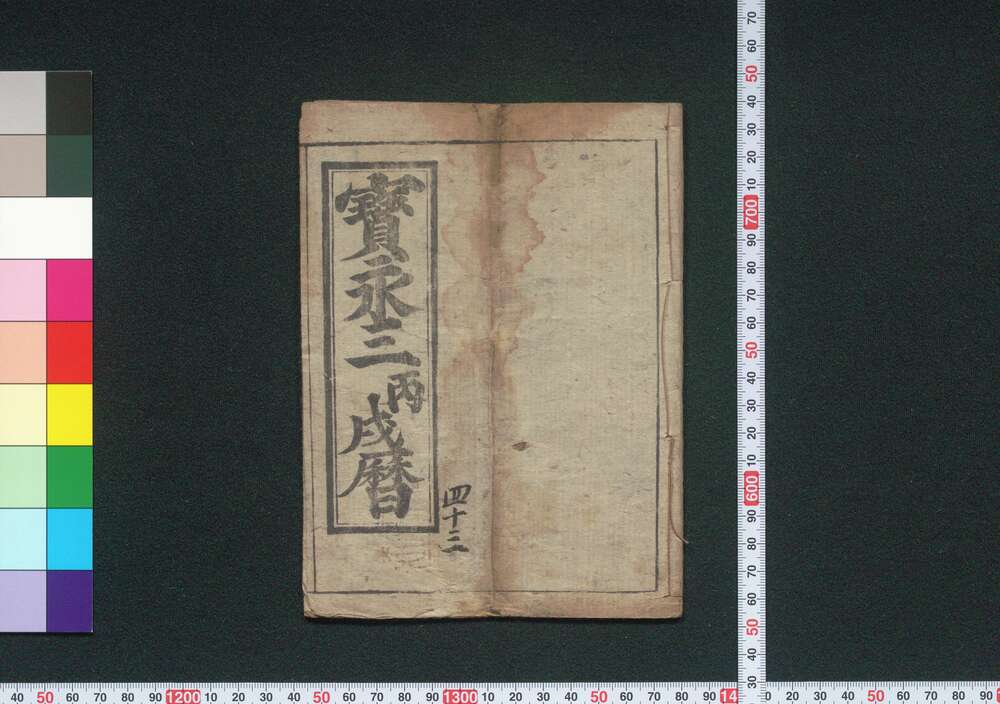 寶永三丙戌暦
四十三
70 60 50 40 30 20 10 700 90 80 70 60 50 40 30 20 10 600 90 80 70 60 50 40 30
40 50 60 70 80 90 1200 10 20 30 40 50 60 70 80 90 1300 10 20 30 40 50 60 70 80 90 14
20 30 40 50 60 70 80 90